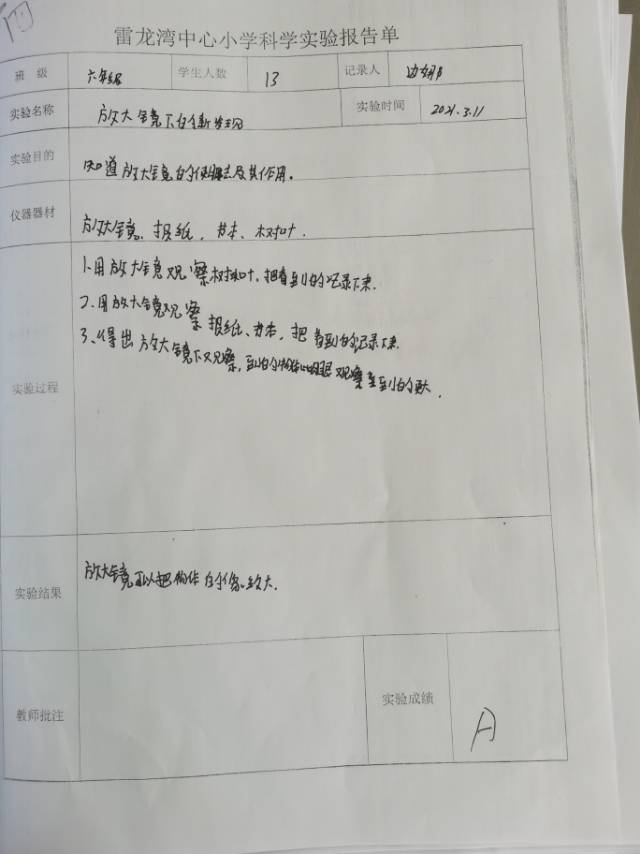 雷龙湾中心小学科学实验报告单
班 级 六年级 学生人数 13 记录人
实验名称 放大镜下的新发现 实验时间 2021.3.11
实验目的 知道放大镜的使用方法及其作用。
仪器器材 放大镜、报纸、书本、树叶.
1.用放大镜观察树叶,把看到的记录下来.
2.用放大镜观察报纸、书本,把看到的记录下来.
3.得出放大镜下观察到的物体比肉眼观察到的大.
实验过程
实验结果 放大镜可以把物体的像放大.
教师批注 实验成绩 A